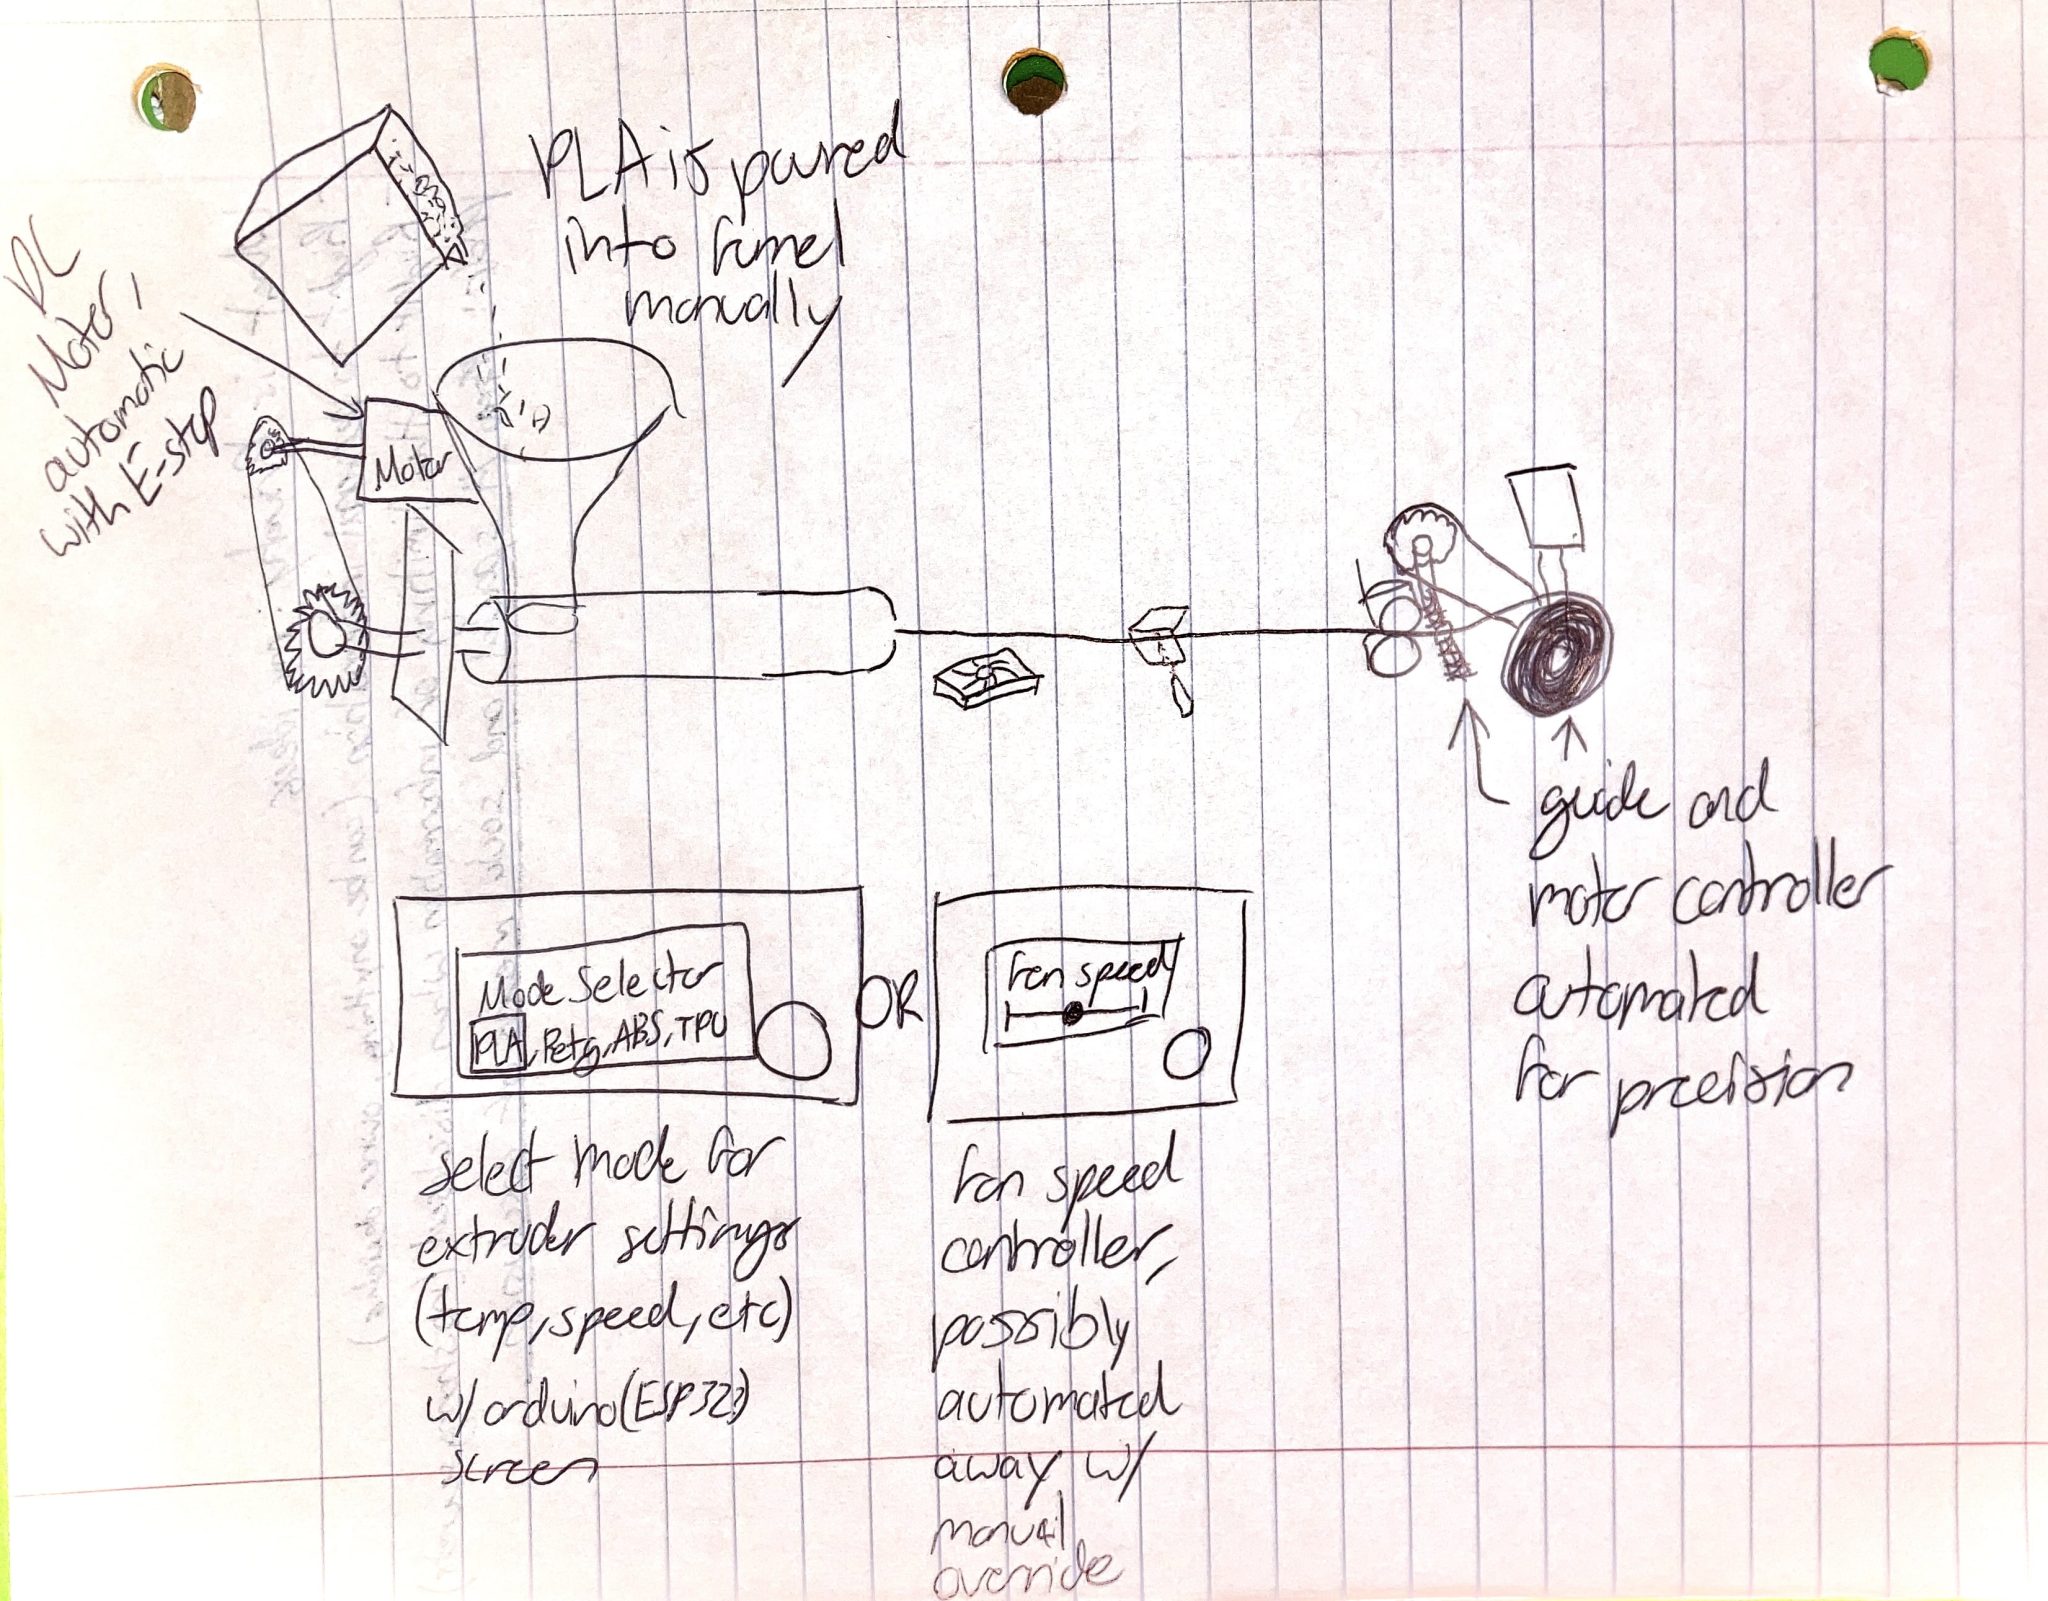 PLA is poured
into funnel
manually
DC
Motor,
automatic
with E-stop
Motor
guide and
motor controller
automated
for precision
Mode Selector
PLA, Petg, ABS, TPU
OR
fan speed
select mode for
extruder settings
(temp, speed, etc)
w/ arduino (ESP32)
screen
fan speed
controller,
possibly
automated
away w/
manual
override